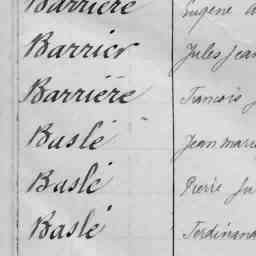 Barrière Eugène
Barrier Jules Jean
Barrière François
Baslé " Jean Marie
Baslé Pierre
Baslé Ferdinand